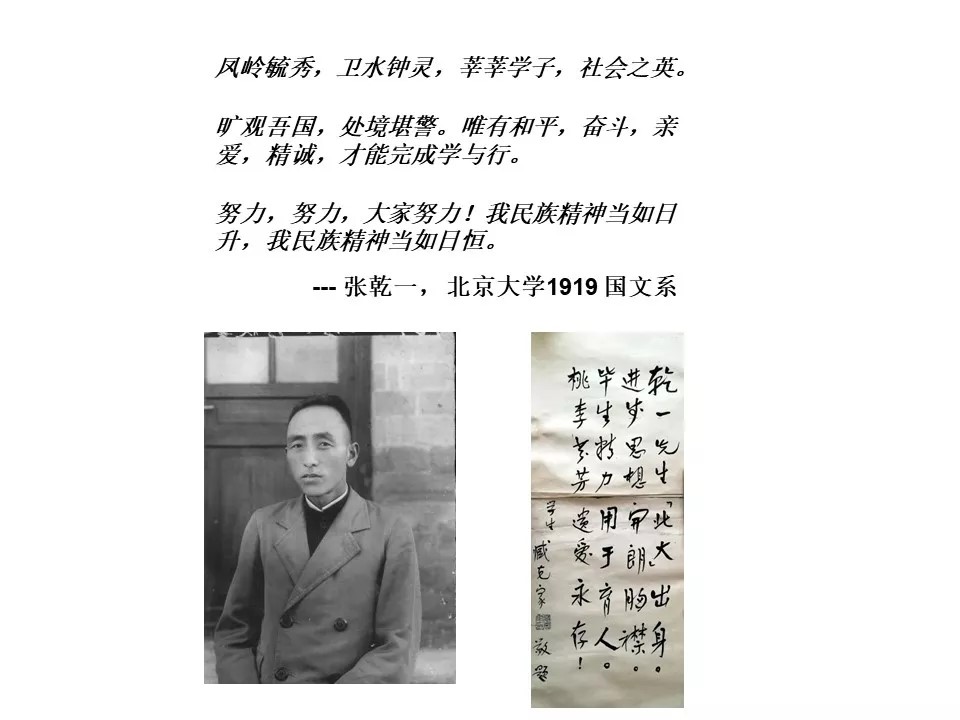 凤岭毓秀，卫水钟灵，莘莘学子，社会之英。
旷观吾国，处境堪警。唯有和平，奋斗，亲
爱，精诚，才能完成学与行。
努力，努力，大家努力！我民族精神当如日
升，我民族精神当如日恒。
--- 张乾一，北京大学1919 国文系
乾一先生「北大」出身。
进步思想开朗胸襟。
毕生精力用于育人。
桃李芬芳遗爱永存！
学生臧克家敬题